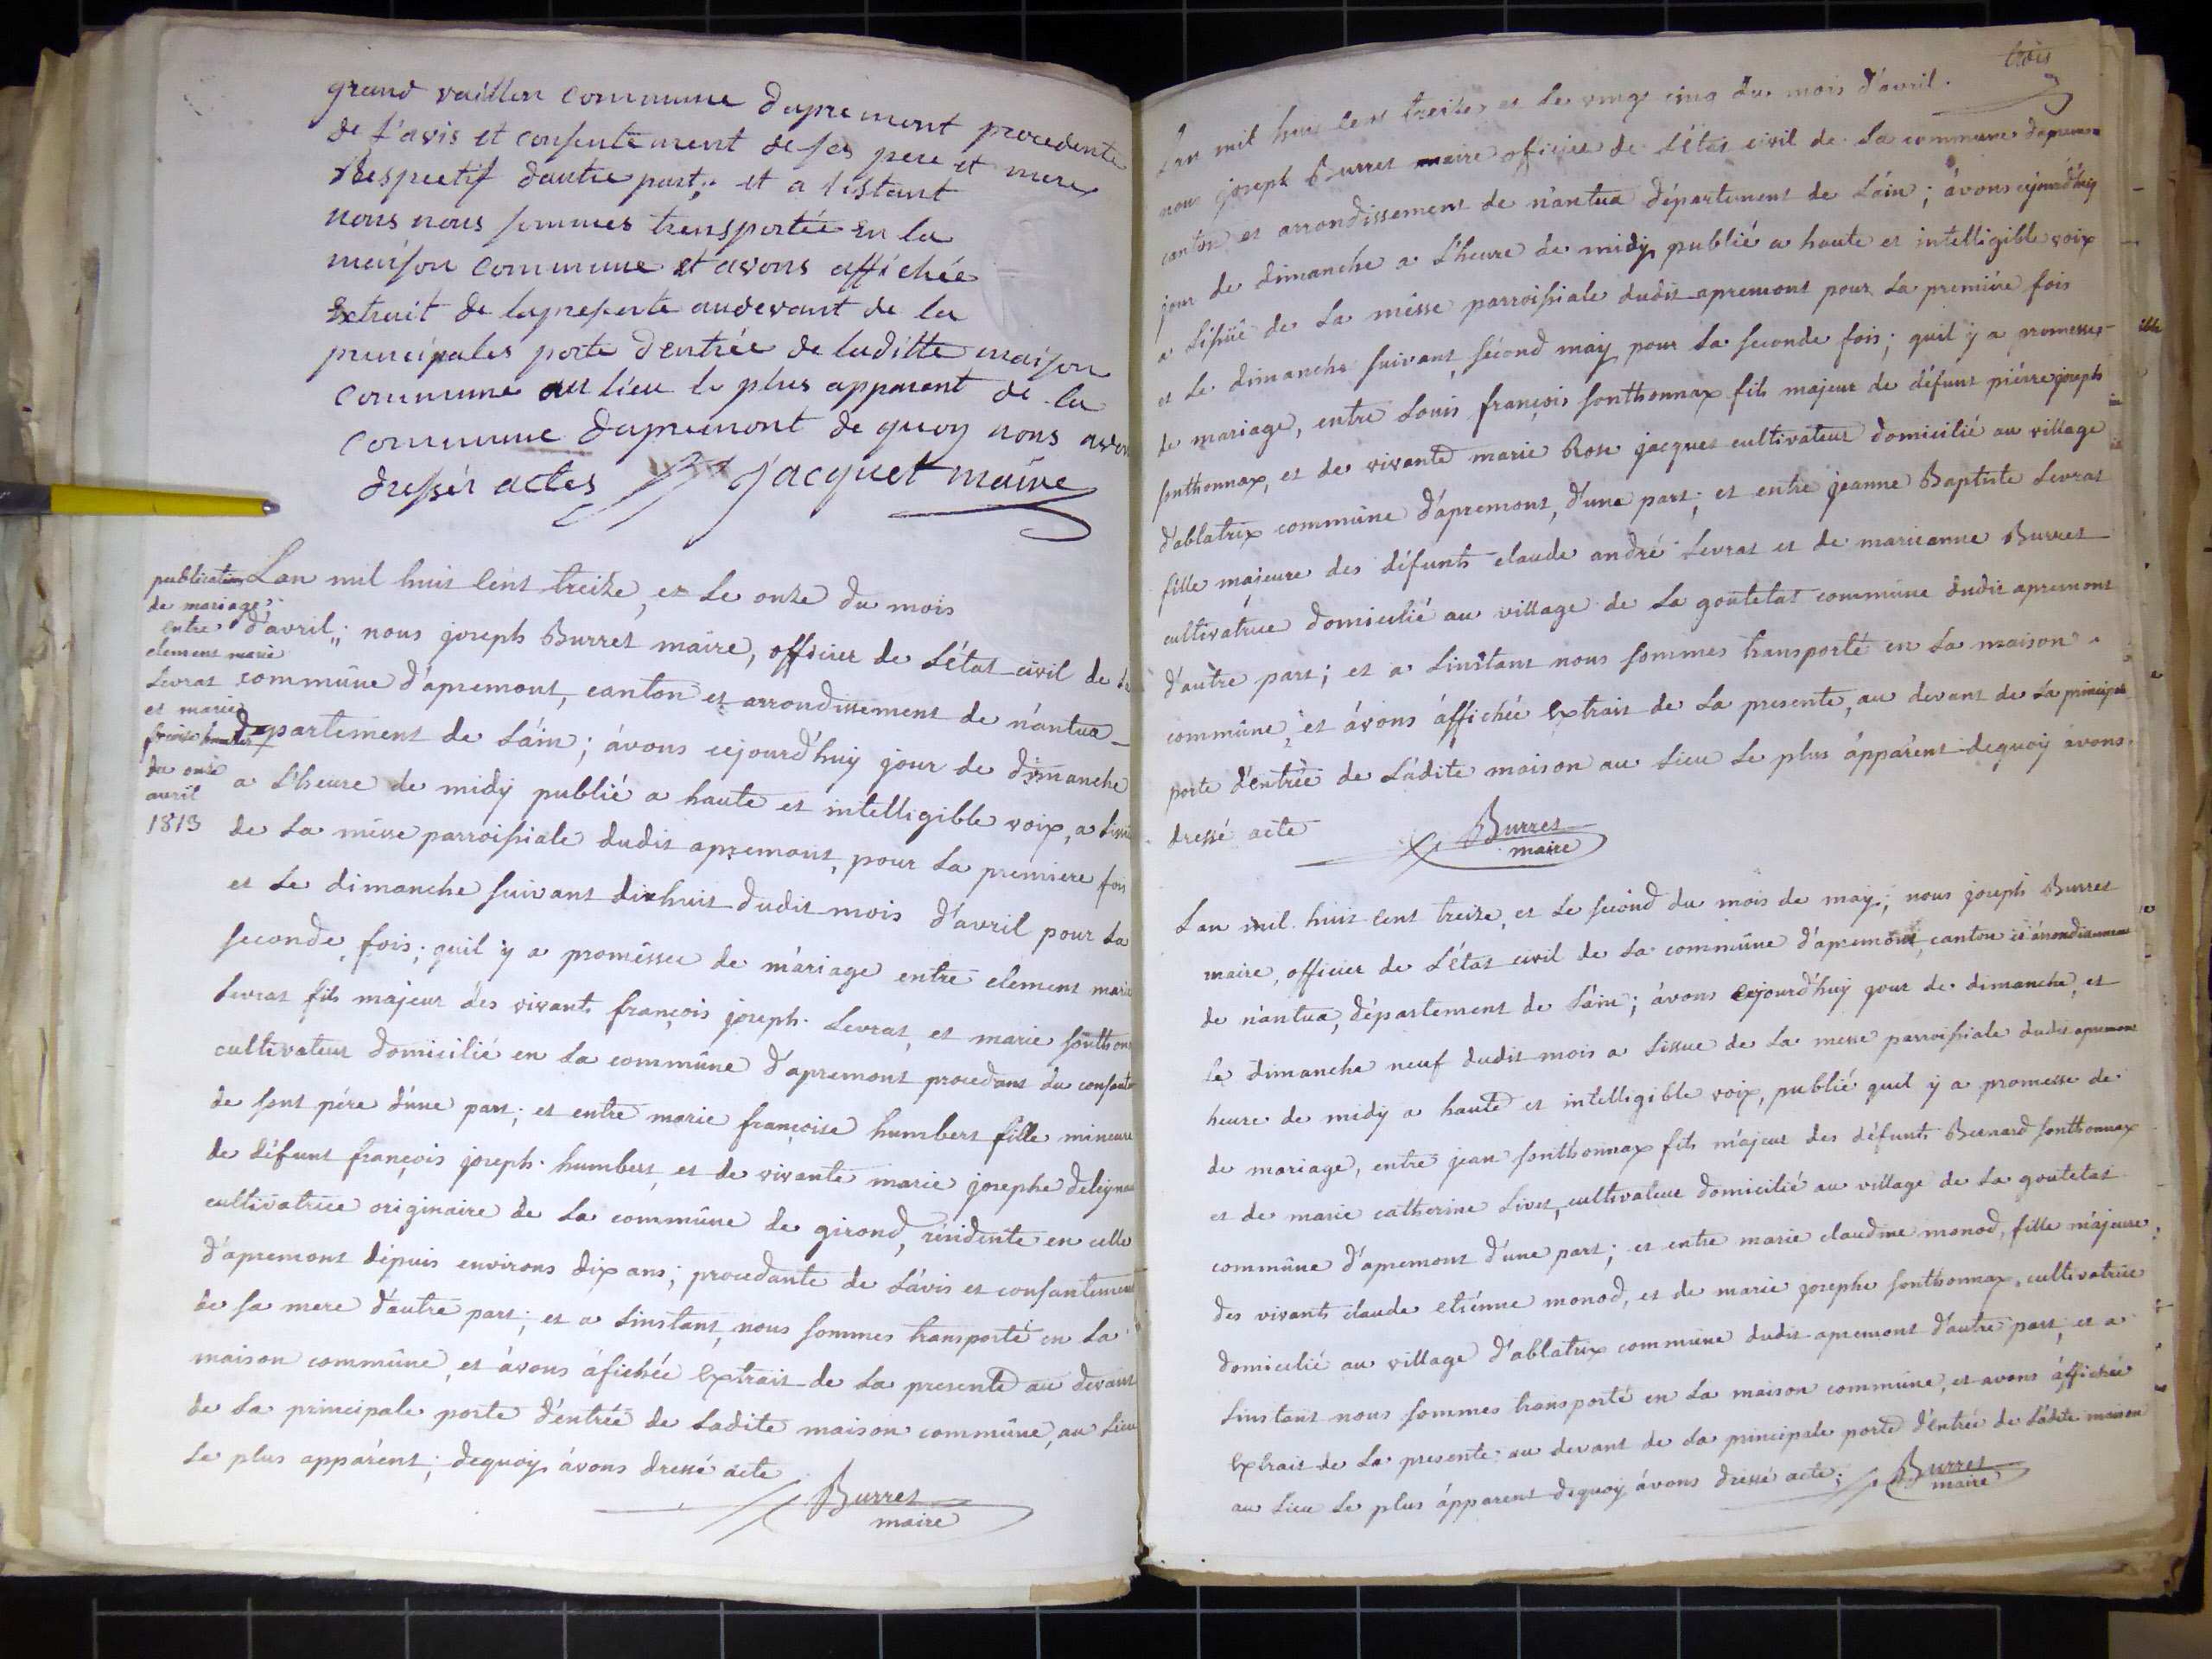 grand vaillon commune dapremont procedente
de l'avis et consentement de ses pere et mere
Respectif dautre part; et a listant
nous nous sommes transportée en la
maison commune et avons affichée
Extrait de lapresente audevant de la
principales porte dentrée de laditte maison
commune au lieu le plus apparent de la
commune dapremont de quoy nous avon
dressér actes jacquet maire
publication
de mariage
entre
clement marie
Levrat
et marie
du onze
avril
1813
Lan mil huit Cent treize, et Le onze du mois
d'avril; nous joseph Burret maire, officier de L'état civil de la
commûne d'apremont, canton et arrondissement de nantua
département de Láin; ávons cejourd'huy jour de dimanche
a L'heure de midy publié a haute et intelligible voix, a Lissu
de La messe parroissiale dudit apremont, pour La premiere fois
et Le dimanche suivant dixhuit dudit mois d'avril pour La
seconde fois; quil y a promesse de mariage entre clement marie
Levrat fils majeur des vivants françois joseph Levrat, et marie sonthon
cultivateur domicilié en La commûne d'apremont procedant du consente
de sont pére d'une part; et entre marie françoise humbert fille mineure
de défunt françois joseph humbert, et de vivante marie josephe
cultivatrice originaire de La commûne de girond, résidente en celle
d'apremont dépuis environs dix ans; procedante de L'avis et consantement
de sa mere d'autre part; et a Linstant, nous sommes transporté en La
maison commûne, et ávons áfichée Extrait de La presente au devant
de La principale porte d'éntrée de Ladite maison commûne, au Lieu
Le plus apparént; dequoy ávons dressé acte
Burret
maire
trois
Lan mil huit Cent treize, et Le vingt cinq du mois d'avril.
nous joseph Burret maire officier de L'état civil de La commune dapremon
canton et arrondissement de nantua département de Láin; ávons cejourd'huy
jour de dimanche a L'heure de midy publié a haute et intelligible voix
a Lissüe de La messe parroissiale dudit apremont pour La premiére fois
et Le dimanche suivant sécond may pour La seconde fois; quil y a promesses
de mariage, entre Louis françois sonthonnax fils majeur de défunt piérre joseph
sonthonnax, et de vivante marie Rose jacques cultivateur domicilié au village
d'ablatrix commûne d'apremont, d'une part; et entre jeanne Baptiste Levrat
fille majeure des défunts claude andré Levrat et de marieanne Burret
cultivatrice domicilié au village de La goutelat commûne dudit apremont
d'autre part; et a Linstant nous sommes transporté en La maison
commûne, et ávons áffichée Extrait de La presente, au devant de La principale
porte d'éntrée de Ládite maison au Lieu Le plus ápparent dequoy avons
dressé acte
Burret
maire
Lan mil huit Cent treize, et Le sécond du mois de may; nous joseph Burret
maire, officier de L'état civil de La commûne d'apremont, canton et árrondissement
de nántua, département de Láin; ávons cejourd'huy jour de dimanche, et
Le dimanche neuf dudit mois a Lissue de La messe parroissiale dudit apremont
heure de midy a haute et intelligible voix, publié quil y a promesse de
de mariage, entre jean sonthonnax fils májeur des défunts Bernard sonthonnax
et de marie catherine Livet, cultivateur domicilié au village de La goutelat
commûne d'apremont d'une part; et entre marie claudine monod, fille májeure
des vivants claude etiénne monod, et de marie josephe sonthonnax, cultivatrice
domicilié au village d'ablatrix commune dudit apremont d'autre part, et a
Linstant nous sommes transporté en La maison commûne, et avons áffichée
Extrait de La presente au devant de La principale porte d'éntrée de Ládite maison
au Lieu Le plus ápparent dequoy ávons dressé acte;
Burret
maire